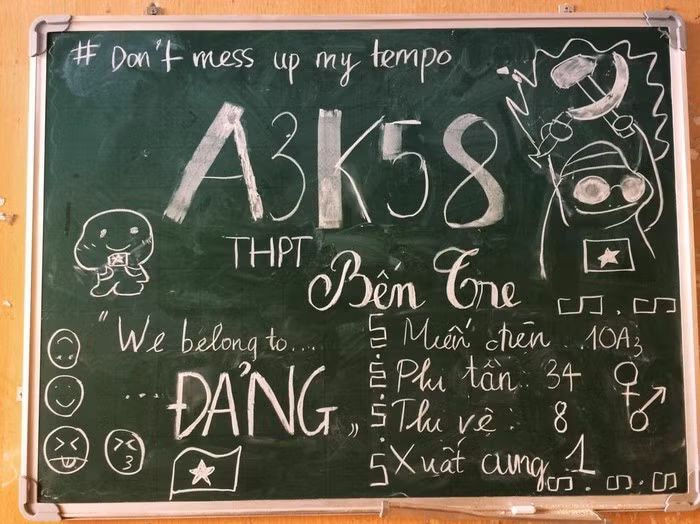 # Don't mess up my tempo
A3K58
THPT
Bến Tre
"We belong to....
... ĐẢNG"
Muến chên 10A3
Phi tần 34
Thị vệ: 8
Xuất cung 1